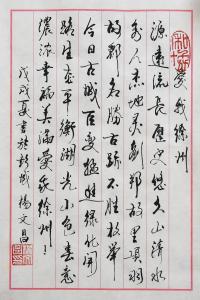 爱我徐州
源远流长历史悠久山清水
秀人杰地灵刘邦故里项羽
故都名胜古迹不胜枚举
今日古城巨变猛进绿化开
路生态平衡湖光山色春意
浓浓幸福美满爱我徐州
戊戌夏书于彭城杨文昌